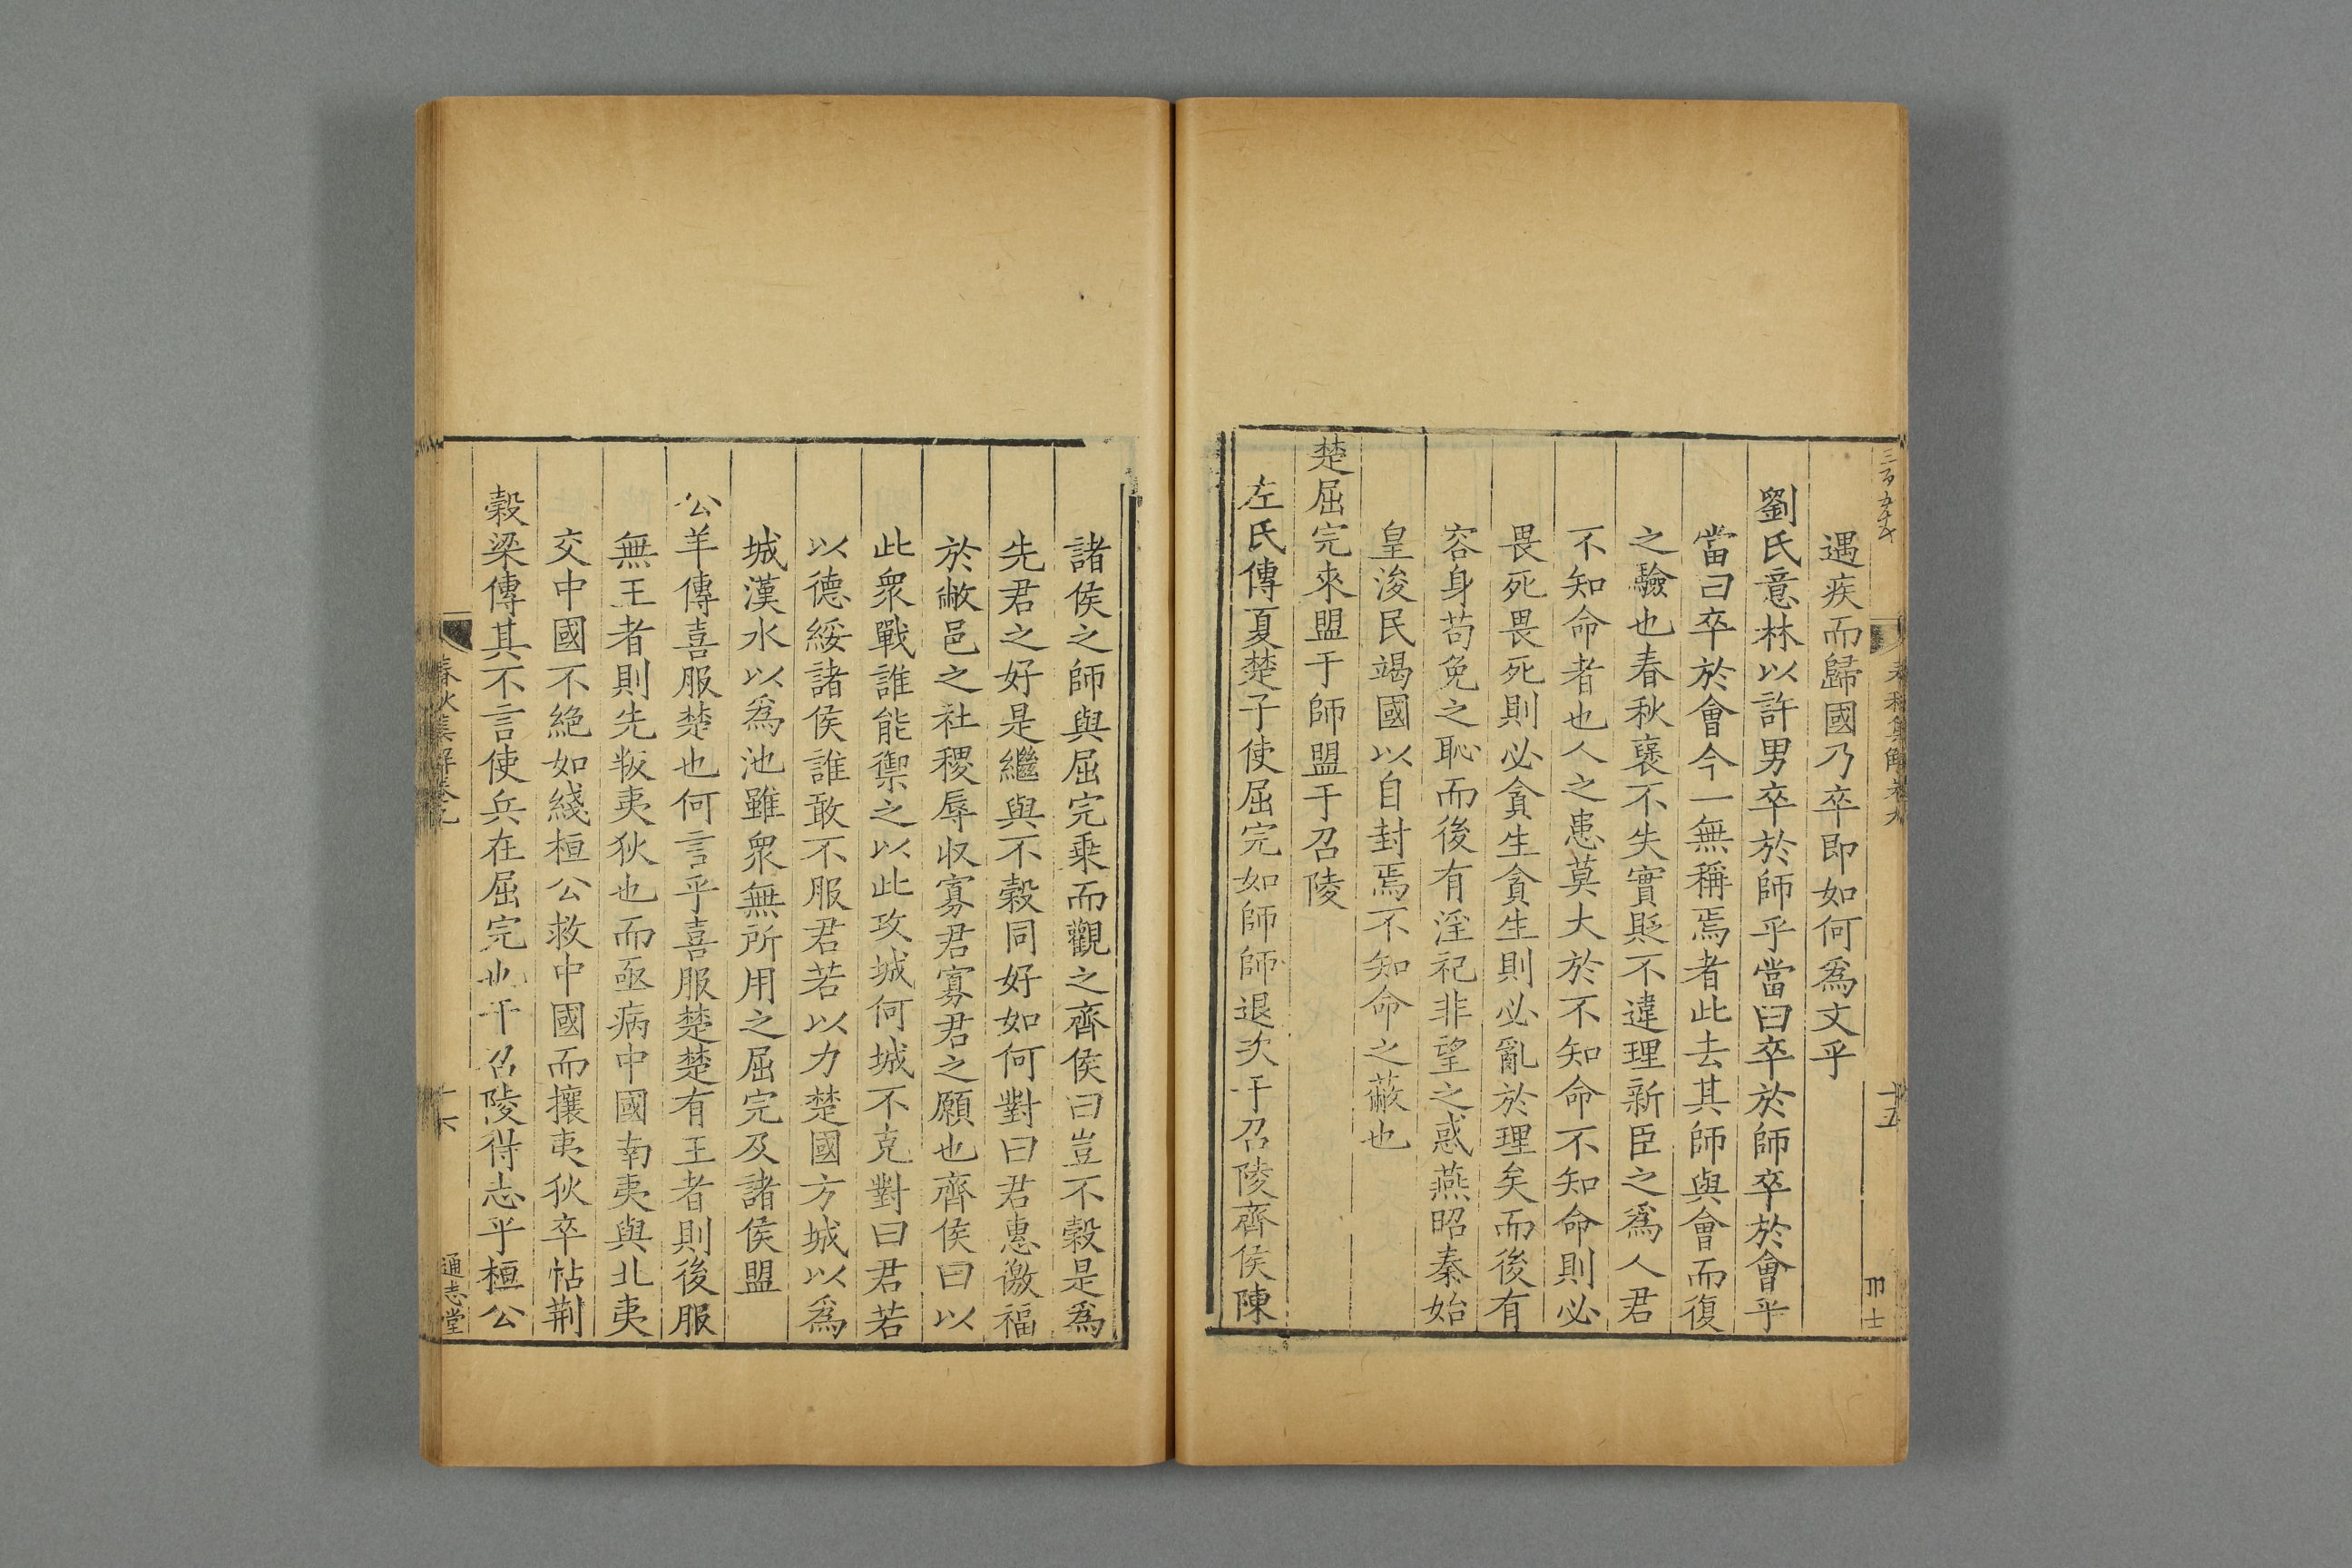 遇疾而歸國乃卒即如何爲文乎
劉氏意林以許男卒於師乎當曰卒於師卒於會乎
當曰卒於會今一無稱焉者此去其師與會而復
之驗也春秋襃不失實貶不違理新臣之爲人君
不知命者也人之患莫大於不知命不知命則必
畏死畏死則必貪生貪生則必亂於理矣而後有
容身苟免之恥而後有淫祀非望之惑燕昭秦始
皇浚民竭國以自封焉不知命之蔽也
楚屈完來盟于師盟于召陵
左氏傳夏楚子使屈完如師師退次于召陵齊侯陳
諸侯之師與屈完乗而觀之齊侯曰豈不穀是爲
先君之好是繼與不穀同好如何對曰君惠徼福
於敝邑之社稷辱收寡君寡君之願也齊侯曰以
此衆戰誰能禦之以此攻城何城不克對曰君若
以德綏諸侯誰敢不服君若以力楚國方城以爲
城漢水以爲池雖衆無所用之屈完及諸侯盟
公羊傳喜服楚也何言乎喜服楚楚有王者則後服
無王者則先叛夷狄也而亟病中國南夷與北夷
交中國不絶如綫桓公救中國而攘夷狄卒帖荆
穀梁傳其不言使兵在屈完也于召陵得志乎桓公
春秋集解卷九
十六
通志堂
春秋集解卷九
十五